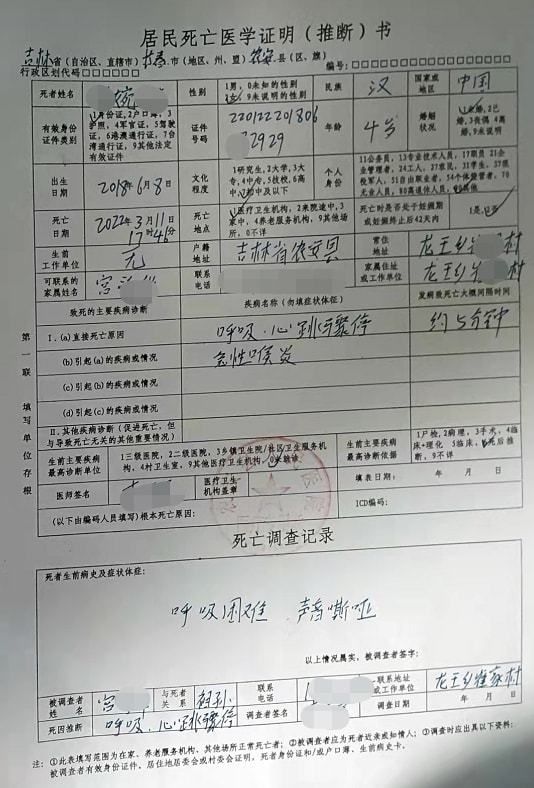 居民死亡医学证明（推断）书
吉林省（自治区、直辖市）长春市（地区、州、盟）农安县（区、旗）
行政区划代码□□□□□□ 编号：□□□□□□□□□□□□□□□□
死者姓名 性别 1男，0未知的性别 2女，9未说明的性别 民族 汉 国家或地区 中国
有效身份证件类别 1身份证，2户口簿，3护照，4军官证，5驾驶证，6港澳通行证，7台湾通行证，9其他法定有效证件 证件号码 220122201806 2929 年龄 4岁 婚姻状况 1未婚，2已婚，3丧偶，4离婚，9未说明
出生日期 2018年6月8日 文化程度 1研究生，2大学，3大专，4中专，5技校，6高中，7初中及以下 个人身份 11公务员，13专业技术人员，17职员，21企业管理者，24工人，27农民，31学生，37现役军人，51自由职业者，54个体经营者，70无业人员，80离退休人员，90其他
死亡日期 2022年3月11日 17时46分 死亡地点 1医疗卫生机构，2来院途中，3家中，4养老服务机构，9其他场所，0不详 死亡时是否处于妊娠期或妊娠终止后42天内 1是，2否
生前工作单位 无 户籍地址 吉林省农安县 常住地址 龙王乡 村
可联系的家属姓名 宫 联系电话 家属住址或工作单位 龙王乡 村
致死的主要疾病诊断 疾病名称（勿填症状体征） 发病致死亡大概间隔时间
Ⅰ.(a)直接死亡原因 呼吸.心跳骤停 约5分钟
(b)引起(a)的疾病或情况 急性喉炎
(c)引起(b)的疾病或情况
(d)引起(c)的疾病或情况
Ⅱ.其他疾病诊断（促进死亡，但与导致死亡无关的其他重要情况）
生前主要疾病最高诊断单位 1三级医院，2二级医院，3乡镇卫生院/社区卫生服务机构，4村卫生室，9其他医疗卫生机构，0未就诊 生前主要疾病最高诊断依据 1尸检，2病理，3手术，4临床+理化 5临床，6死后推断，9不详
医师签名 医疗卫生机构盖章 填表日期： 年 月 日
（以下由编码人员填写）根本死亡原因： ICD编码：
第一联 填写单位存根
死亡调查记录
死者生前病史及症状体征：
呼吸困难 声音嘶哑
以上情况属实，被调查者签字：
被调查者姓名 宫 与死者关系 祖孙 联系电话 联系地址或工作单位 龙王乡崔家村
死因推断 呼吸.心跳骤停 调查者签名 调查日期 年 月 日
注：①此表填写范围为在家、养老服务机构、其他场所正常死亡者；②被调查者应为死者近亲或知情人；③调查时应出具以下资料：
被调查者有效身份证件，居住地居委会或村委会证明，死者身份证和/或户口簿、生前病史卡。